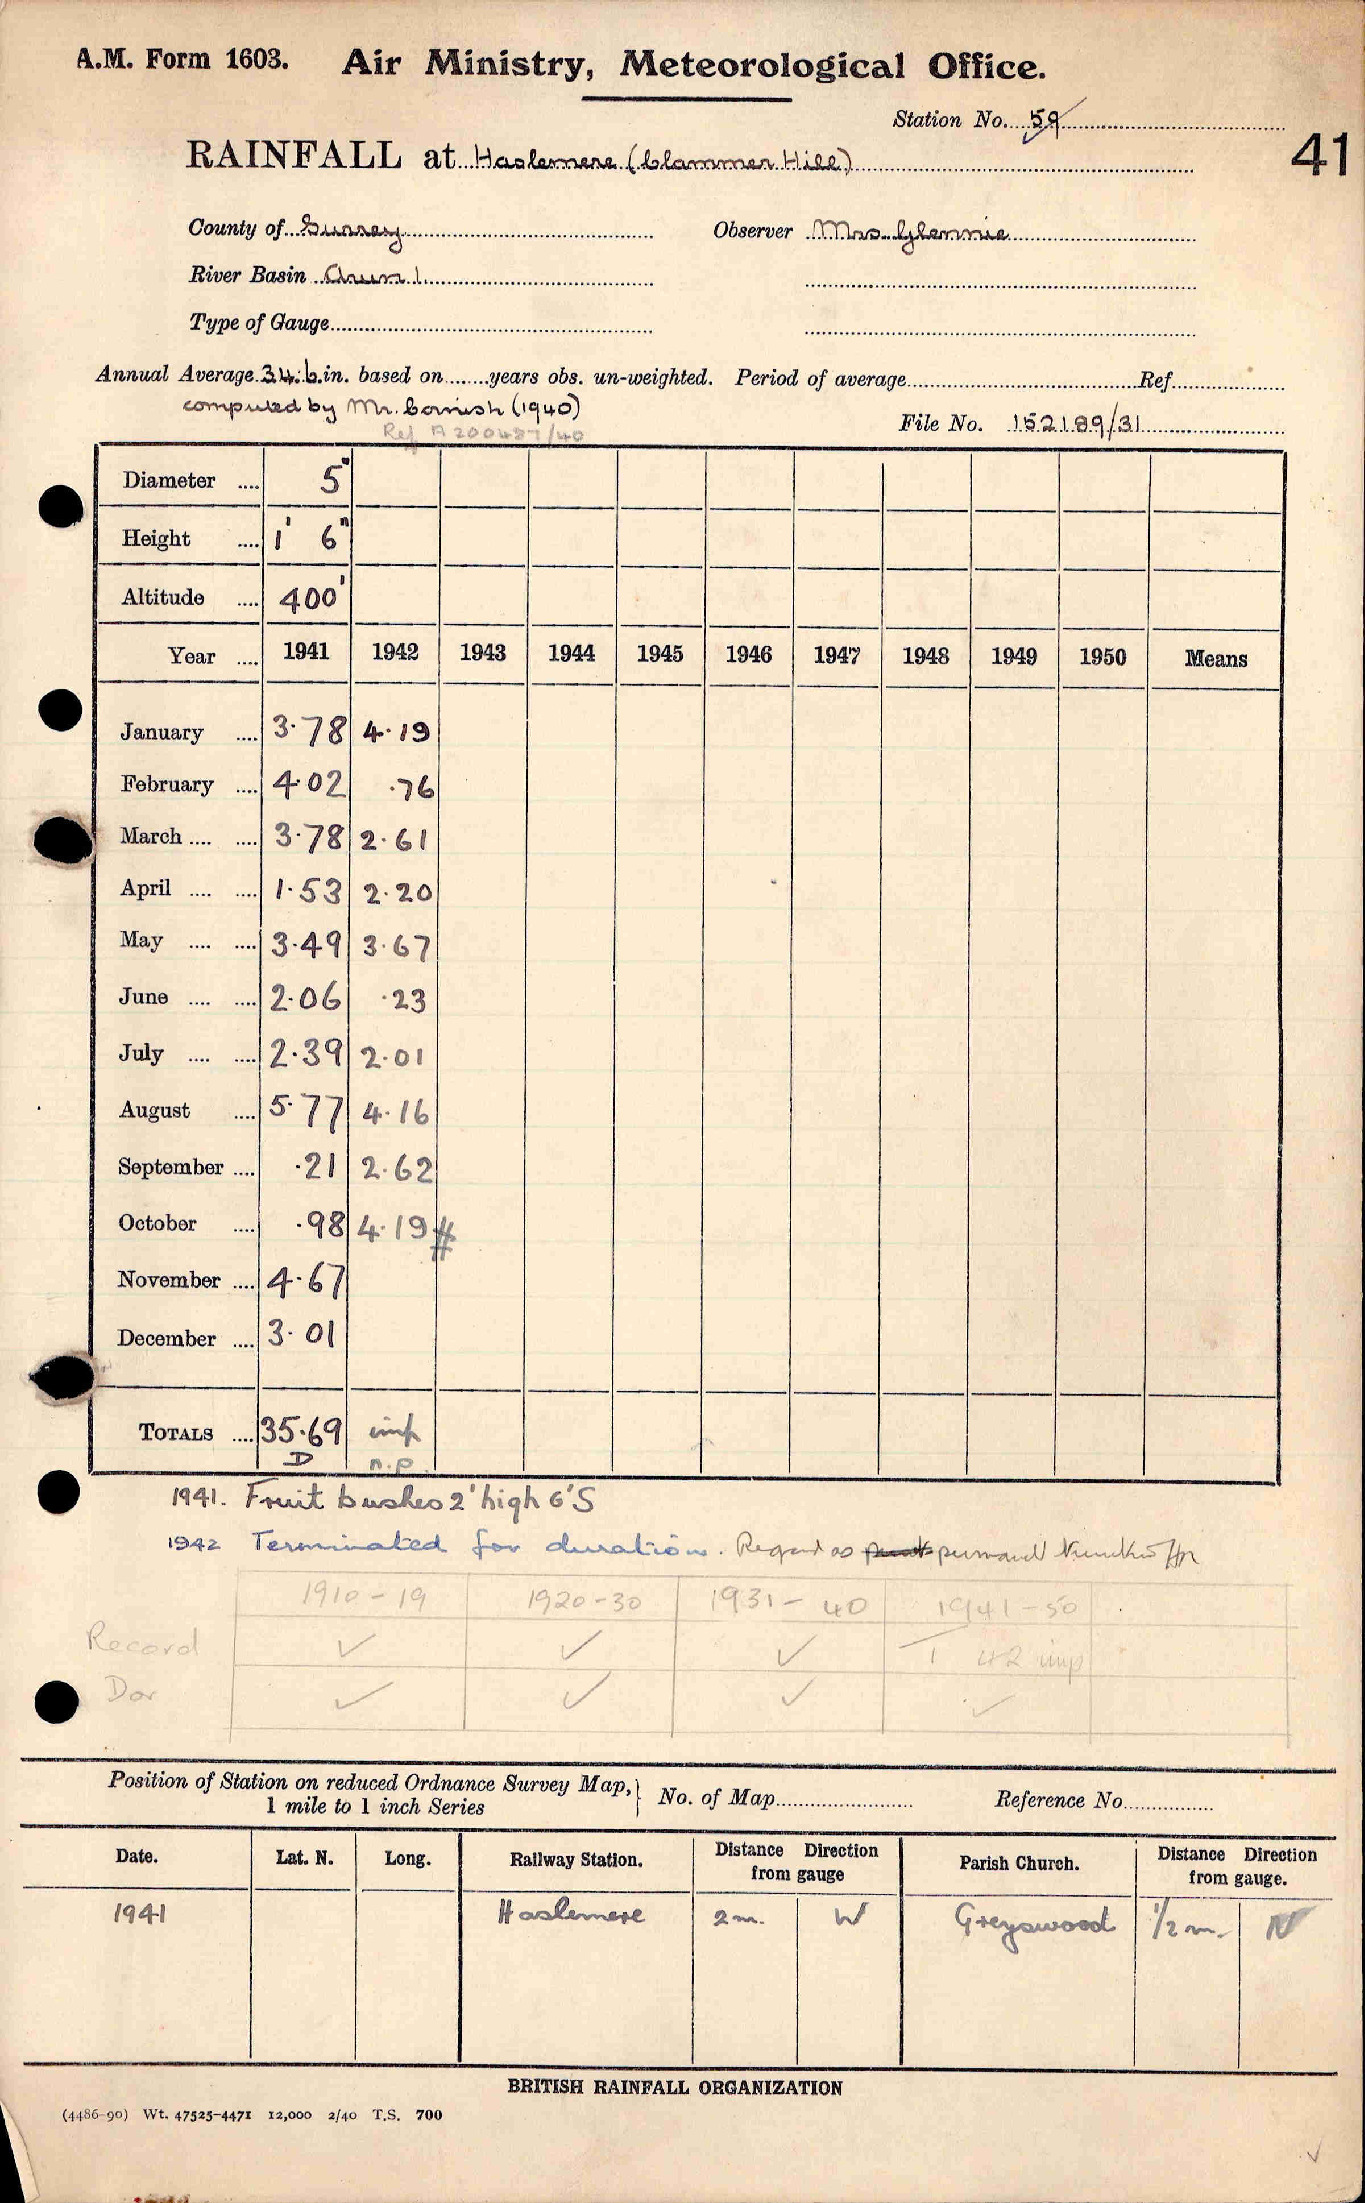 A.M. Form 1603. Air Ministry, Meteorological Office.
Station No. 59
RAINFALL at Haslemere (Clammer Hill) 41
County of Surrey Observer Mrs. Glennie
River Basin Arun 1
Type of Gauge
Annual Average 34.6 in. based on years obs. un-weighted. Period of average Ref
computed by Mr. Cornish (1940) File No. 152189/31
Ref A200487/40
Diameter .... 5"
Height .... 1' 6"
Altitude .... 400'
Year .... 1941 1942 1943 1944 1945 1946 1947 1948 1949 1950 Means
January .... 3.78 4.19
February .... 4.02 .76
March .... .... 3.78 2.61
April .... .... 1.53 2.20
May .... .... 3.49 3.67
June .... .... 2.06 .23
July .... .... 2.39 2.01
August .... 5.77 4.16
September .... .21 2.62
October .... .98 4.19 #
November .... 4.67
December .... 3.01
TOTALS .... 35.69 imp
D n.p.
1941. Fruit bushes 2' high 6' S
1942 Terminated for duration. Regard as
1910-19 1920-30 1931-40 1941-50
Record ✓ ✓ ✓ T 42 imp
Dor ✓ ✓ ✓ ✓
Position of Station on reduced Ordnance Survey Map, } No. of Map Reference No.
1 mile to 1 inch Series
Date. Lat. N. Long. Railway Station. Distance Direction from gauge Parish Church. Distance Direction from gauge.
1941 Haslemere 2 m. W Greyswood 1/2 m. N
BRITISH RAINFALL ORGANIZATION
(4486-90) Wt. 47525-4471 12,000 2/40 T.S. 700